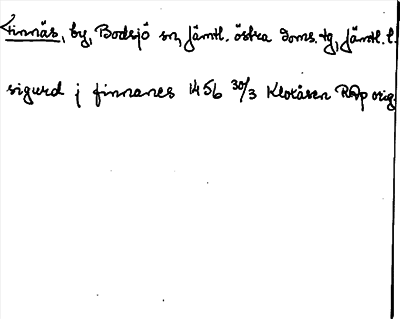 Finnäs, by, Bodsjö sn, Jämtl. östra doms. tg, Jämtl. l.
sigurd j finnanes 1456 30/3 Klokåsen RAp orig.